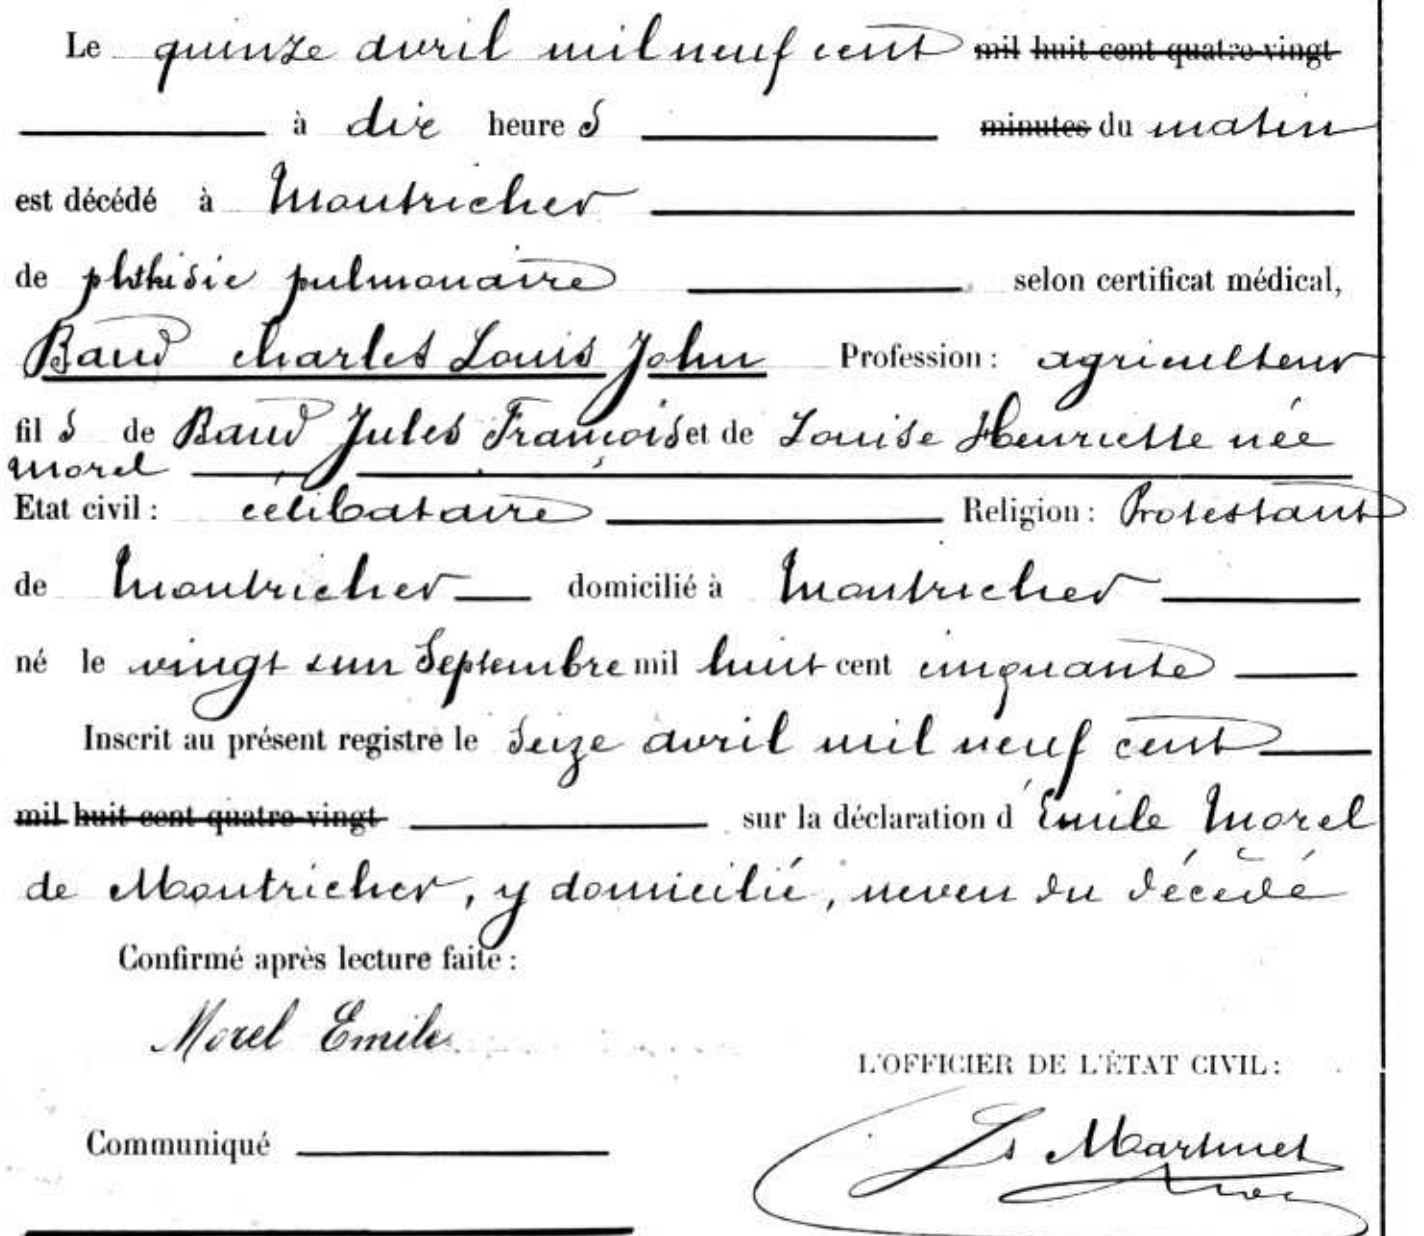 Le quinze avril mil neuf cent mil huit cent quatre-vingt
à dix heures minutes du matin
est décédé à Montricher
de phthisie pulmonaire selon certificat médical,
Baud Charles Louis John Profession : agriculteur
fils de Baud Jules François et de Louise Henriette née
Morel
Etat civil : célibataire Religion : Protestant
de Montricher domicilié à Montricher
né le vingt sun Septembre mil huit cent cinquante
Inscrit au présent registre le seize avril mil neuf cent
mil huit cent quatre-vingt sur la déclaration d'Emile Morel
de Montricher, y domicilié, neveu du décédé
Confirmé après lecture faite :
Morel Emile
L'OFFICIER DE L'ÉTAT CIVIL :
Communiqué Ls Martinet